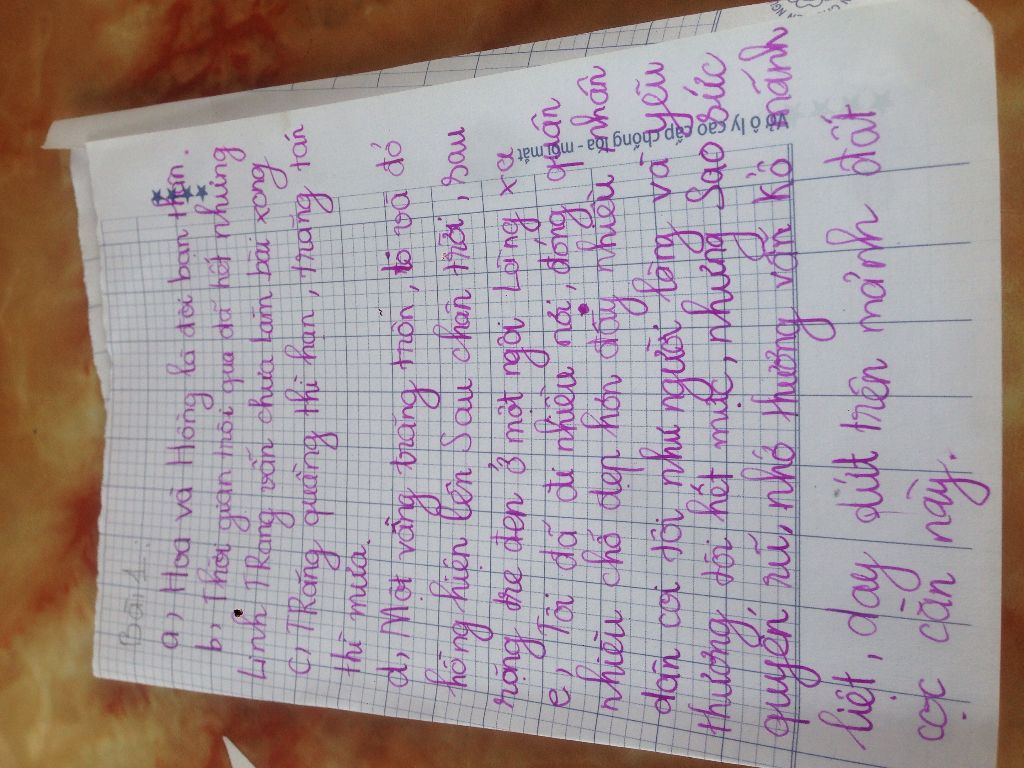 Bài 1:
a, Hoa và Hồng là đôi bạn thân.
b, Thời gian trôi qua đã hết nhưng
Linh Trang vẫn chưa làm bài xong
c, Trăng quầng thì hạn, trăng tán
thì mưa.
d, Một vầng trăng tròn, to và đỏ
hồng hiện lên Sau chân trời, sau
rặng tre đen ở một ngôi làng xa
e, Tôi đã đi nhiều nơi, đóng quân
nhiều chỗ đẹp hơn đây nhiều nhân
dân coi tôi như người làng và yêu
thương tôi hết mực, nhưng Sao sức
quyến rũ, nhớ thương vẫn Kô mãnh
liệt, day dứt trên mảnh đất
cọc cằn này.
Vở ô ly cao cấp chống lóa - mỏi mắt